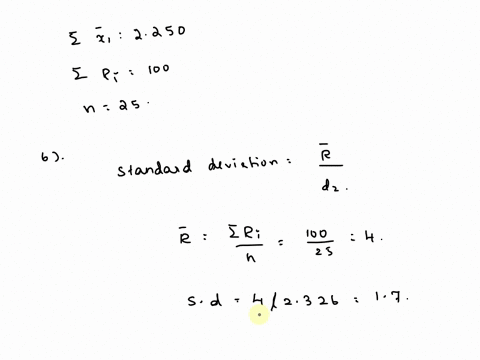 Σ x̄₁ : 2.250
Σ Rᵢ = 100
n = 25.
b).
standard deviation = R̄ / d₂.
R̄ = ΣRᵢ / n = 100 / 25 = 4.
s.d = 4 / 2.326 = 1.7.